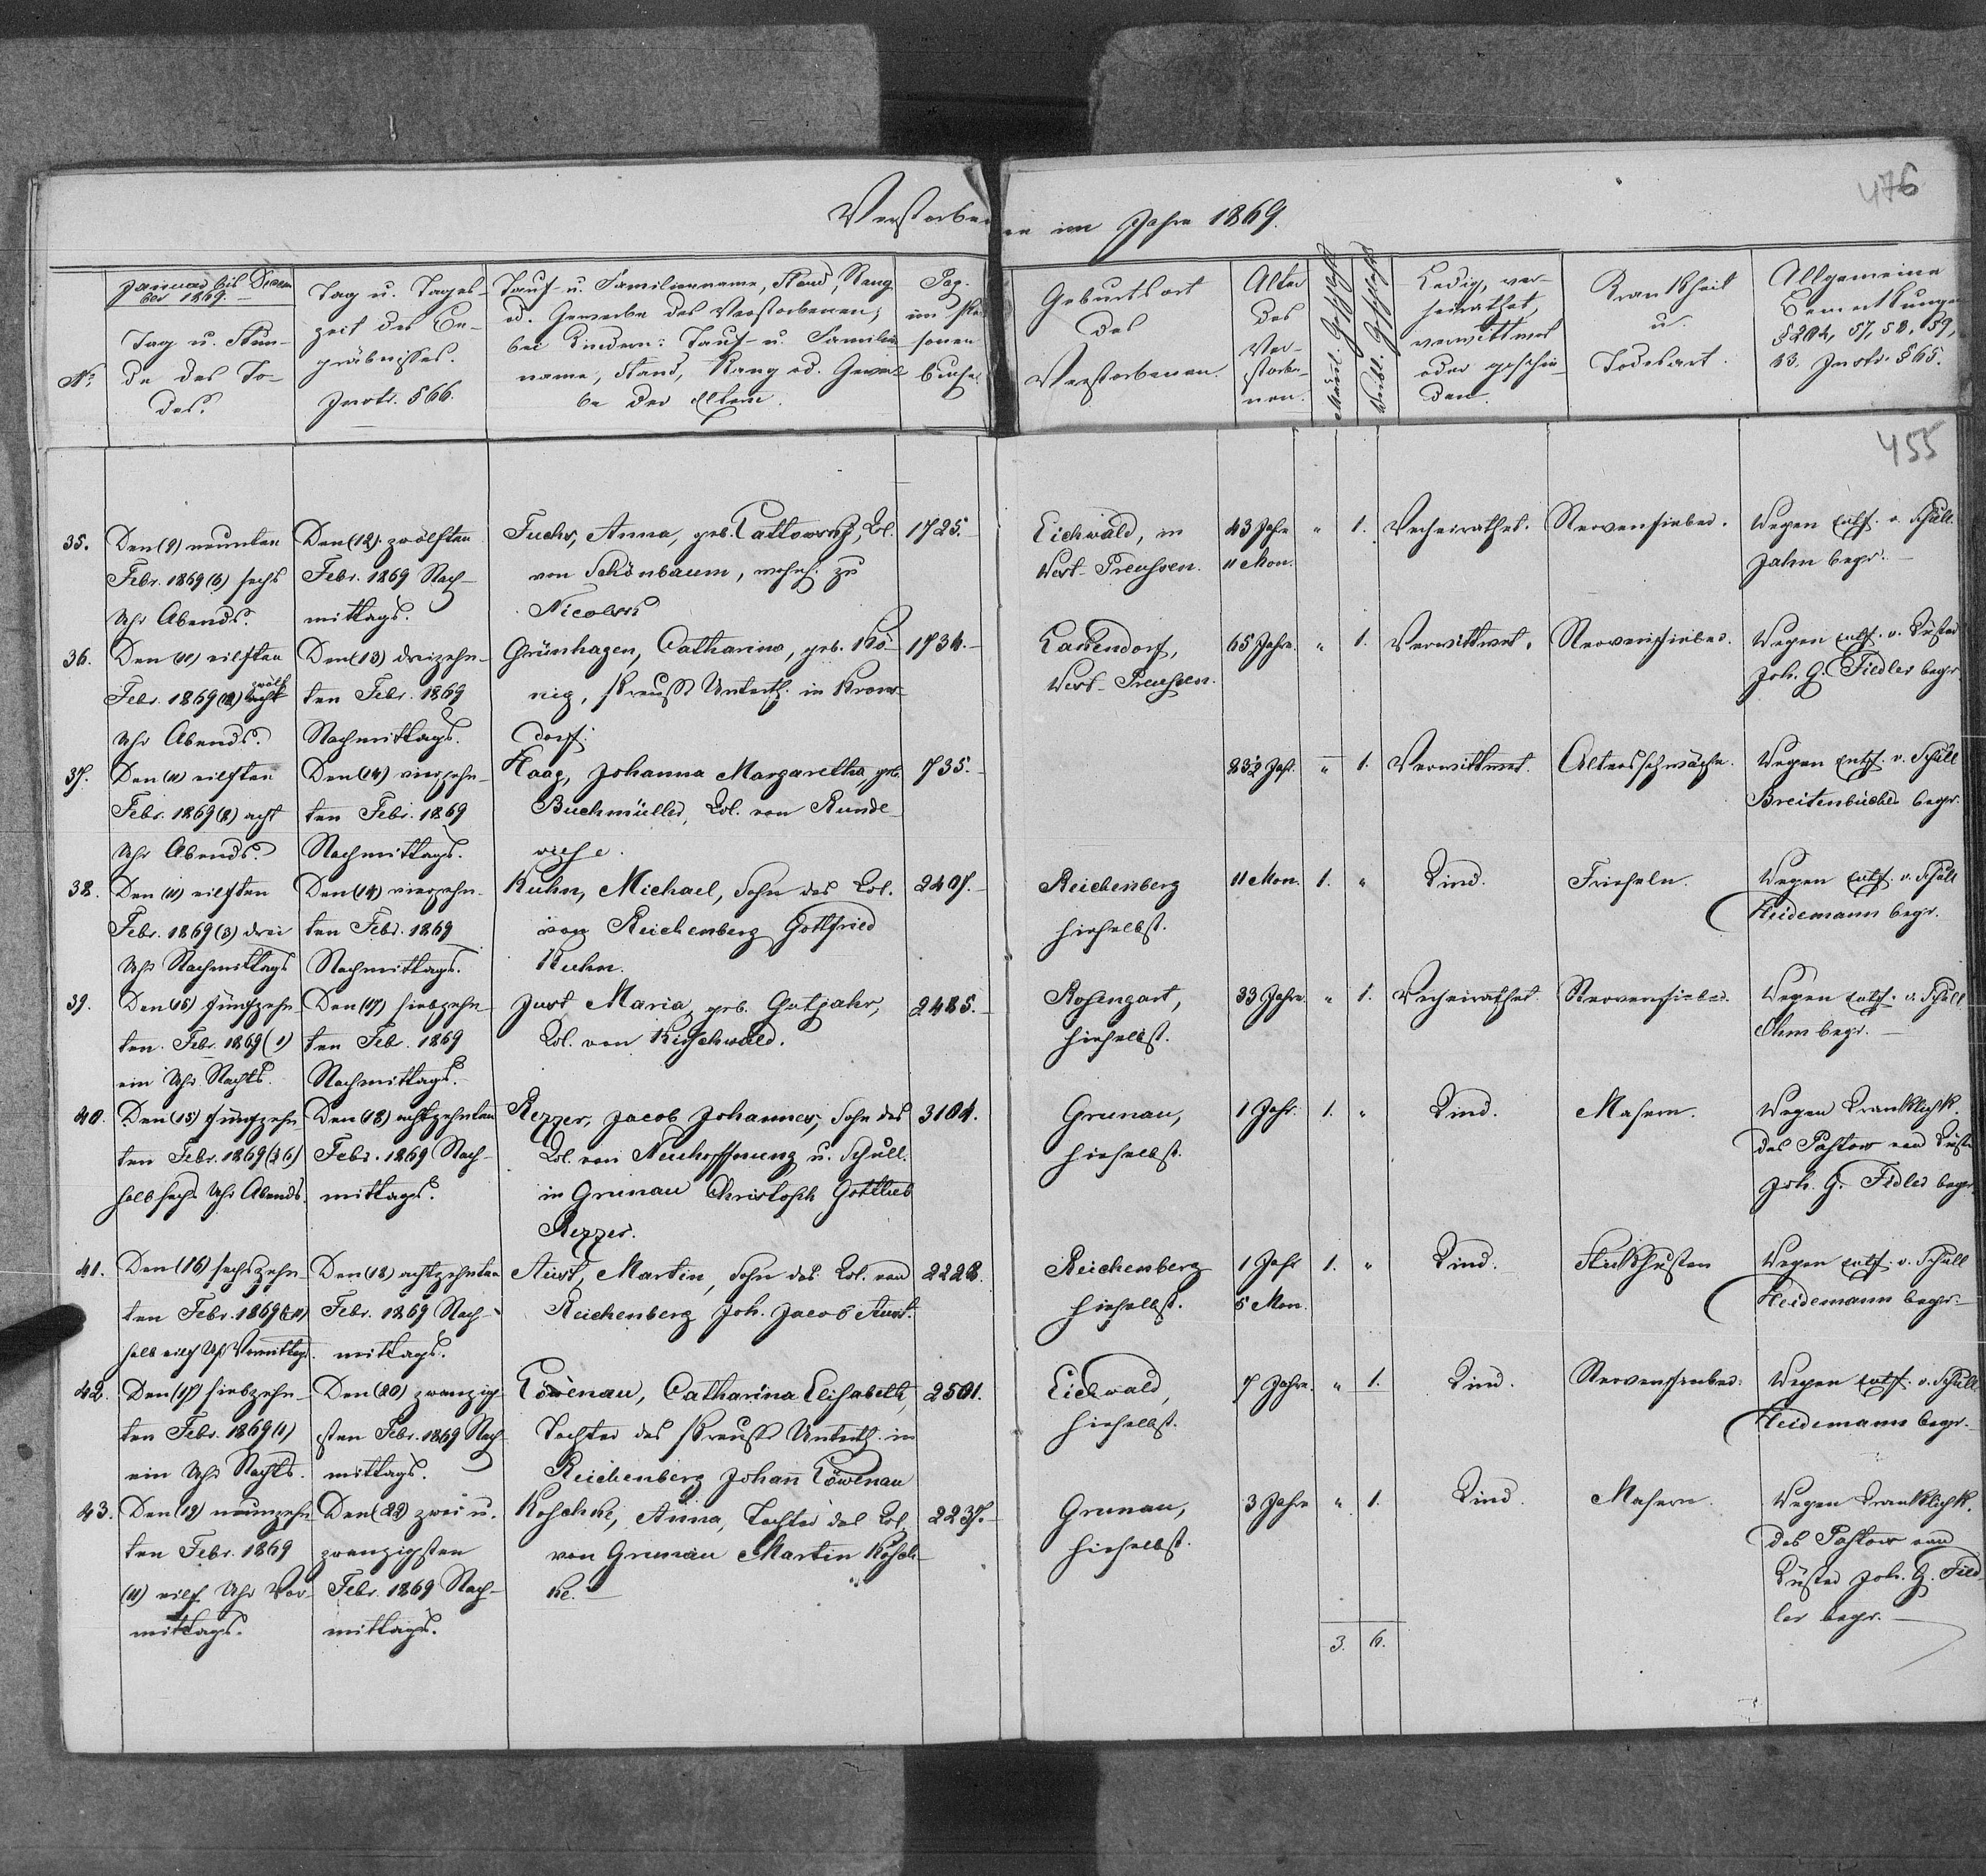 476
Verstorbene im Jahre 1869.
Januar bis Decem
ber 1869.
No
Tag u. Stun-
de des To-
des.
Tag u. Tages-
zeit des Be-
gräbnisses.
Instr. §66.
Tauf- u. Familienname, Stand, Rang
od. Gewerbe des Verstorbenen;
bei Kindern: Tauf- u. Familien
name, Stand, Rang od. Gewer-
be der Eltern.
Pag.
im Per
sonen
buche.
Geburtsort
des
Verstorbenen.
Alter
des
Ver-
storbe-
nen.
Männl. Geschlecht
Weibl. Geschlecht
Ledig, ver-
heirathet,
verwittwet
oder geschie-
den.
Krankheit
u.
Todesart.
Allgemeine
Bemerkungen
§204, 57, 58, 59,
33. Instr. §65.
455
35.
Den (9) neunten
Febr. 1869 (6) sechs
Uhr Abends.
Den (12) zwölften
Febr. 1869 Nach-
mittags.
Fuchs, Anna, geb. Kol.
von Schönbaum, wohnh. zu
1725.
Eichwald, in
West-Preussen.
43 Jahr
11 Mon.
" 1.
Verheirathet.
Nervenfieber.
Wegen Entf. v. Schull.
Jahn begr.
36.
Den (11) eilften
Febr. 1869 (12) zwölf
Uhr Abends.
Den (13) dreizehn-
ten Febr. 1869
Nachmittags.
Grünhagen, Catharina, geb. Kö-
nig, Preuss Unterth. in Krons-
dorf.
1734.
West-Preussen.
65 Jahre.
" 1.
Verwittwet.
Nervenfieber.
Wegen Entf. v. Küster
Joh. G. Fiedler begr.
37.
Den (11) eilften
Febr. 1869 (8) acht
Uhr Abends.
Den (14) vierzehn-
ten Febr. 1869
Nachmittags.
Haag, Johanna Margaretha geb.
Buchmüller, Kol. von Runde-
wiese.
735.
83½ Jahr.
" 1.
Verwittwet.
Altersschwäche.
Wegen Entf. v. Schull
Breitenbücher begr.
38.
Den (11) eilften
Febr. 1869 (3) drei
Uhr Nachmittags
Den (14) vierzehn-
ten Febr. 1869
Nachmittags.
Kuhn, Michael, Sohn des Kol.
von Reichenberg Gottfried
Kuhn.
2407.
Reichenberg
hieselbst.
11 Mon.
1. "
Kind.
Frieseln.
Wegen Entf. v. Schull
Heidemann begr.
39.
Den (15) fünfzehn
ten Febr. 1869 (1)
ein Uhr Nachts.
Den (17) siebzehn-
ten Febr. 1869
Nachmittags.
Just, Maria, geb. Gutjahr,
Kol. von Kirschwald.
2485.
Rosengart,
hieselbst.
33 Jahre.
" 1.
Verheirathet.
Nervenfieber.
Wegen Entf. v. Schull
Ohm begr.
40.
Den (15) fünfzehn
ten Febr. 1869 (½6)
halb sechs Uhr Abends.
Den (18) achtzehnten
Febr. 1869 Nach-
mittags.
Rezzer, Jacob Johannes, Sohn des
Kol. von Neuhoffnung u. Schull.
in Grunau Christoph Gottlieb
Rezzer.
3104.
Grunau,
hieselbst.
1 Jahr.
1. "
Kind.
Masern.
Wegen Kränklichk.
des Pastors von Küster
Joh. G. Fidler begr.
41.
Den (16) sechszehn-
ten Febr. 1869 (½11)
halb eilf Uhr Vormittags.
Den (18) achtzehnten
Febr. 1869 Nach-
mittags.
Aust, Martin, Sohn des Kol. von
Reichenberg Joh. Jacob Aust.
2228.
Reichenberg
hieselbst.
1 Jahr
5 Mon.
1. "
Kind.
Stickhusten
Wegen Entf. v. Schull
Heidemann begr.
42.
Den (17) siebzehn-
ten Febr. 1869 (1)
ein Uhr Nachts.
Den (20) zwanzig-
sten Febr. 1869 Nach-
mittags.
Löwenau, Catharina Elisabeth,
Tochter des Preuss Unterth. in
Reichenberg Johann Löwenau
2501.
Eichwald,
hieselbst.
7 Jahre.
" 1.
Kind.
Nervenfieber.
Wegen Entf. v. Schull
Heidemann begr.
43.
Den (19) neunzehn
ten Febr. 1869
(11) eilf Uhr Vor-
mittags.
Den (22) zwei u.
zwanzigsten
Febr. 1869 Nach-
mittags.
Koschke, Anna, Tochter des Kol.
von Grunau Martin Kosch-
ke.
2237.
Grunau,
hieselbst.
3 Jahre
" 1.
Kind.
Masern.
Wegen Kränklichk.
des Pastors von
Küster Joh. G. Fied-
ler begr.
3. 6.